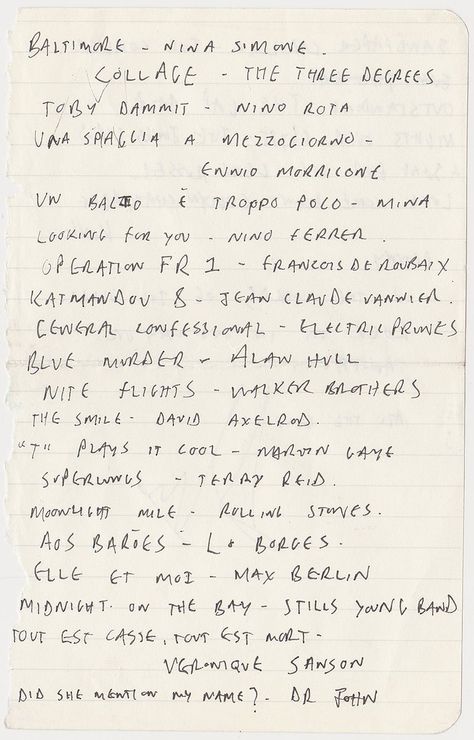 BALTIMORE - NINA SIMONE.
COLLAGE - THE THREE DEGREES
TOBY DAMMIT - NINO ROTA
UNA SPAGGIA A MEZZOGIORNO -
ENNIO MORRICONE
UN BACIO È TROPPO POCO - MINA
LOOKING FOR YOU - NINO FERRER.
OPERATION FR 1 - FRANCOIS DE ROUBAIX
KATMANDOU 8 - JEAN CLAUDE VANNIER.
GENERAL CONFESSIONAL - ELECTRIC PRUNES
BLUE MURDER - ALAN HULL
NITE FLIGHTS - WALKER BROTHERS
THE SMILE - DAVID AXELROD.
"T" PLAYS IT COOL - MARVIN GAYE
SUPERLUNGS - TERRY REID.
MOONLIGHT MILE - ROLLING STONES.
AOS BARÕES - Lô BORGES.
ELLE ET MOI - MAX BERLIN
MIDNIGHT ON THE BAY - STILLS YOUNG BAND
TOUT EST CASSE, TOUT EST MORT -
VERONIQUE SANSON
DID SHE MENTION MY NAME? - DR JOHN